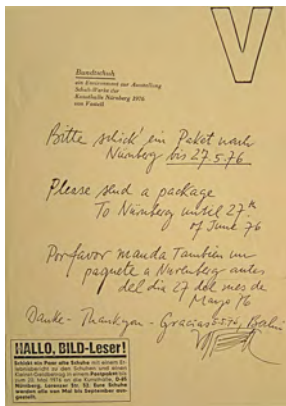 V
Bundtschuh
ein Environment zur Ausstellung
Schuh-Werke der
Kunsthalle Nürnberg 1976
von Vostell
Bitte schick' ein Paket nach
Nürnberg bis 27.5.76
Please send a package
To Nürnberg until 27th
of June 76
Por favor manda También un
paquete a Nurenberg antes
del dia 27 del mes de
Março 76
Danke - Thankyou - Gracias 5.5.76, Berlin
HALLO, BILD-Leser!
Schickt ein Paar alte Schuhe mit einem Er-
lebnisbericht zu den Schuhen und einem
Kleinst-Geldbetrag in einem Postpaket bis
zum 20. Mai 1976 an die Kunsthalle, D-85
Nürnberg, Lorenzer Str. 32. Eure Schuhe
werden alle von Mai bis September aus-
gestellt.